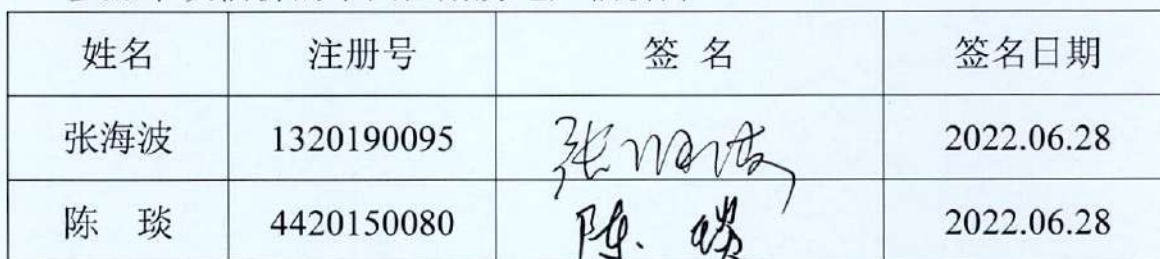 姓名 注册号 签 名 签名日期
张海波 1320190095 张海波 2022.06.28
陈 琰 4420150080 陈琰 2022.06.28